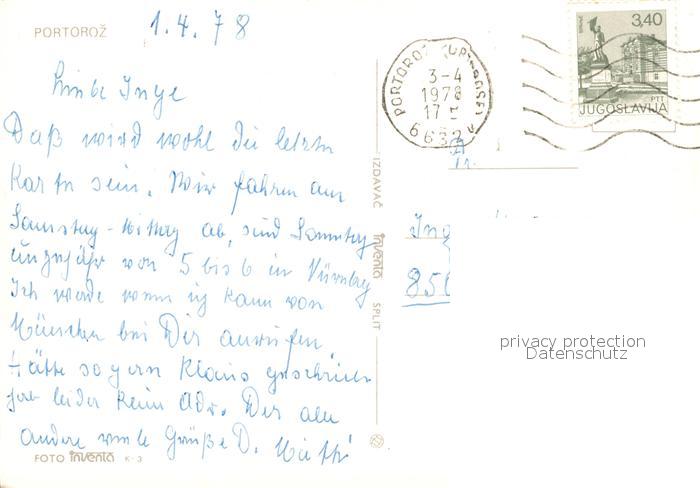 PORTOROŽ
1.4.78
Liebe Inge
Daß wird wohl die letzte
Karte sein. Wir fahren am
Samstag-Mittag ab, sind Sonntag
ungefähr von 5 bis 6 in Nürnberg
Ich werde wenn ich kann von
München bei Dir anrufen
Hätte so gern Klaus geschrieben
hab leider keine Adr. Dir alles
andere viele Grüße D.
FOTO inventa K-3
IZDAVAČ inventa SPLIT
PORTOROŽ
3-4
1978
17
3,40
PTT
JUGOSLAVIJA
Ing
850
privacy protection
Datenschutz